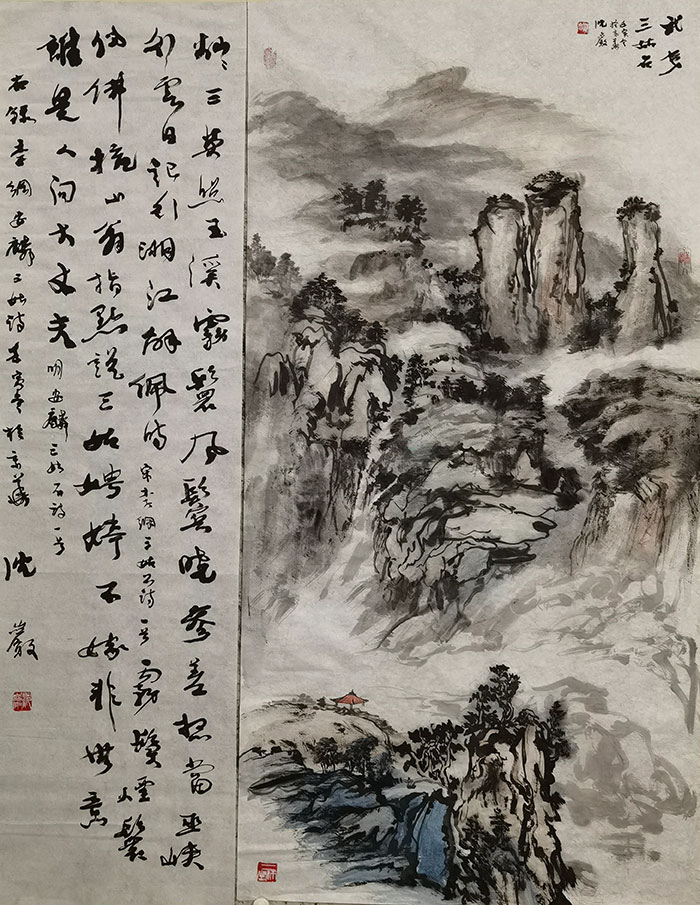 武夷
三姑石
壬寅冬
於京華
沈巖
灿灿三英照玉溪霧鬟風鬢曉參差想當巫峽
行雲日記引湘江解佩時宋李綱三姑石詩一首霧鬢煙鬟
仿佛梳山翁指點說三姑娉婷不嫁非無意
誰是人間大丈夫明安麟三姑石詩一首
右錄李綱安麟三姑詩壬寅冬於京華沈巖